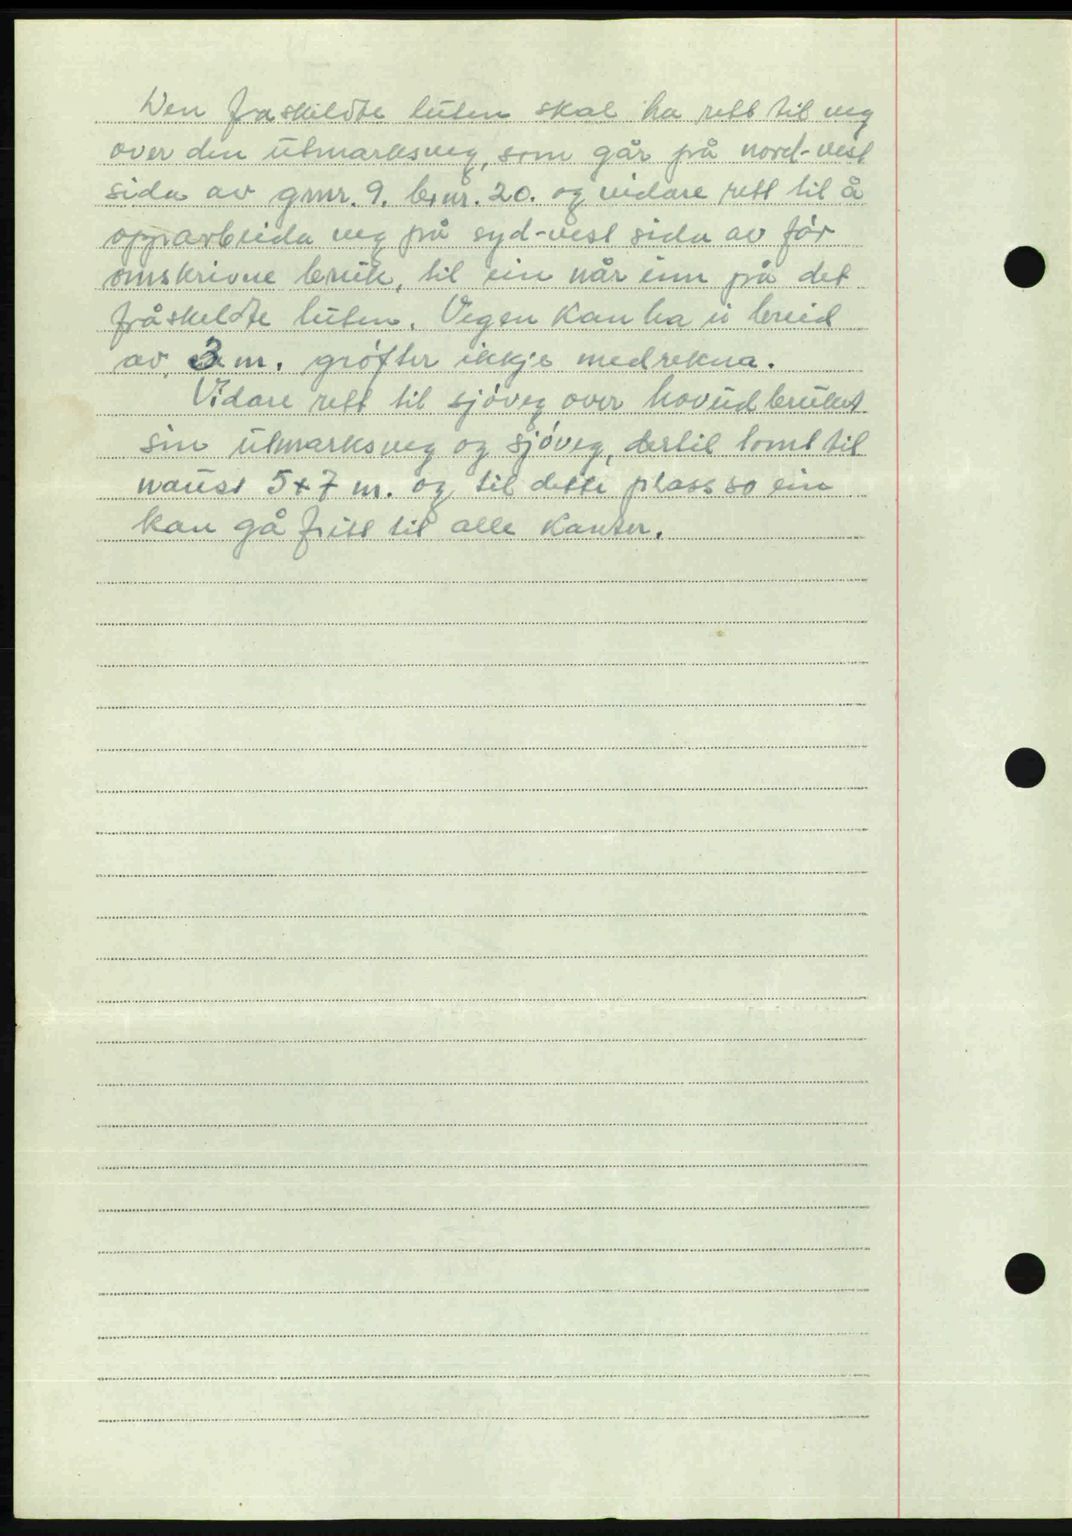 Den fraskildte luten skal ha rett til veg
over den utmarksveg, som går på nord-vest
sida av gmr. 9. br.nr. 20. og vidare rett til å
opparbeida veg på syd-vest sida av før
omskrivne bruk, til ein når inn på det
fråskeldte luten. Vegen kan ha ei breid
av 3 m. grøfter ikkje medrekna.
Vidare rett til sjøveg over hovudbruket
sin utmarksveg og sjøveg, dertil tomt til
naust 5x7 m. og til dette plass so ein
kan gå fritt til alle kanter.